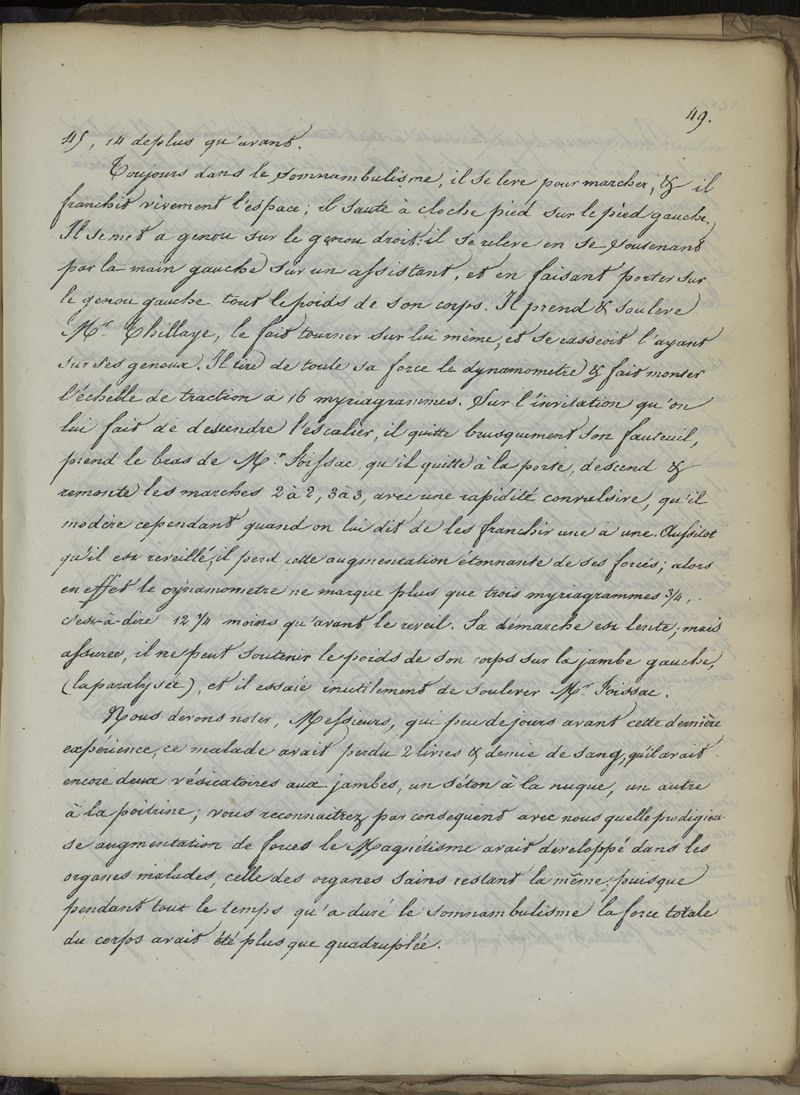 49.
45, 14 de plus qu'avant.
Toujours dans le somnambulisme, il se leve pour marcher, & il
franchit vivement l'espace; il saute à cloche pied sur le pied gauche.
Il se met a genou sur le genou droit: il se releve en se soutenant
par la main gauche sur un assistant, et en faisant porter sur
le genou gauche tout le poids de son corps. Il prend & souleve
Mr. Thillaye, le fait tourner sur lui même, et se rasseoit l'ayant
sur ses genoux. Il tire de toute sa force le dynamometre & fait monter
l'échelle de traction a 16 myriagrammes. Sur l'invitation qu'on
lui fait de descendre l'escalier, il quitte brusquement son fauteuil,
prend le bras de Mr. Foissac qu'il quitte à la porte, descend &
remonte les marches 2 à 2, 3 à 3, avec une rapidité convulsive, qu'il
modère cependant quand on lui dit de les franchir une à une. Aussitot
qu'il est reveillé, il perd cette augmentation étonnante de ses forces; alors
en effet le dynamometre ne marque plus que trois myriagrammes 3/4,
c'est-à-dire 12 1/4 moins qu'avant le reveil. Sa démarche est lente, mais
assurée, il ne peut soutenir le poids de son corps sur la jambe gauche,
(la paralysée), et il essaie inutilement de soulever Mr. Foissac.
Nous devons noter, Messieurs, que peu de jours avant cette dernière
expérience, ce malade avait perdu 2 livres & demie de sang, qu'il avait
encore deux vésicatoires aux jambes, un séton à la nuque, un autre
à la poitrine; vous reconnaitrez par consequent avec nous quelle prodigieu-
se augmentation de forces le Magnétisme avait developpé dans les
organes malades, celle des organes sains restant la même, puisque
pendant tout le temps qu'a duré le somnambulisme la force totale
du corps avait été plus que quadruplée.